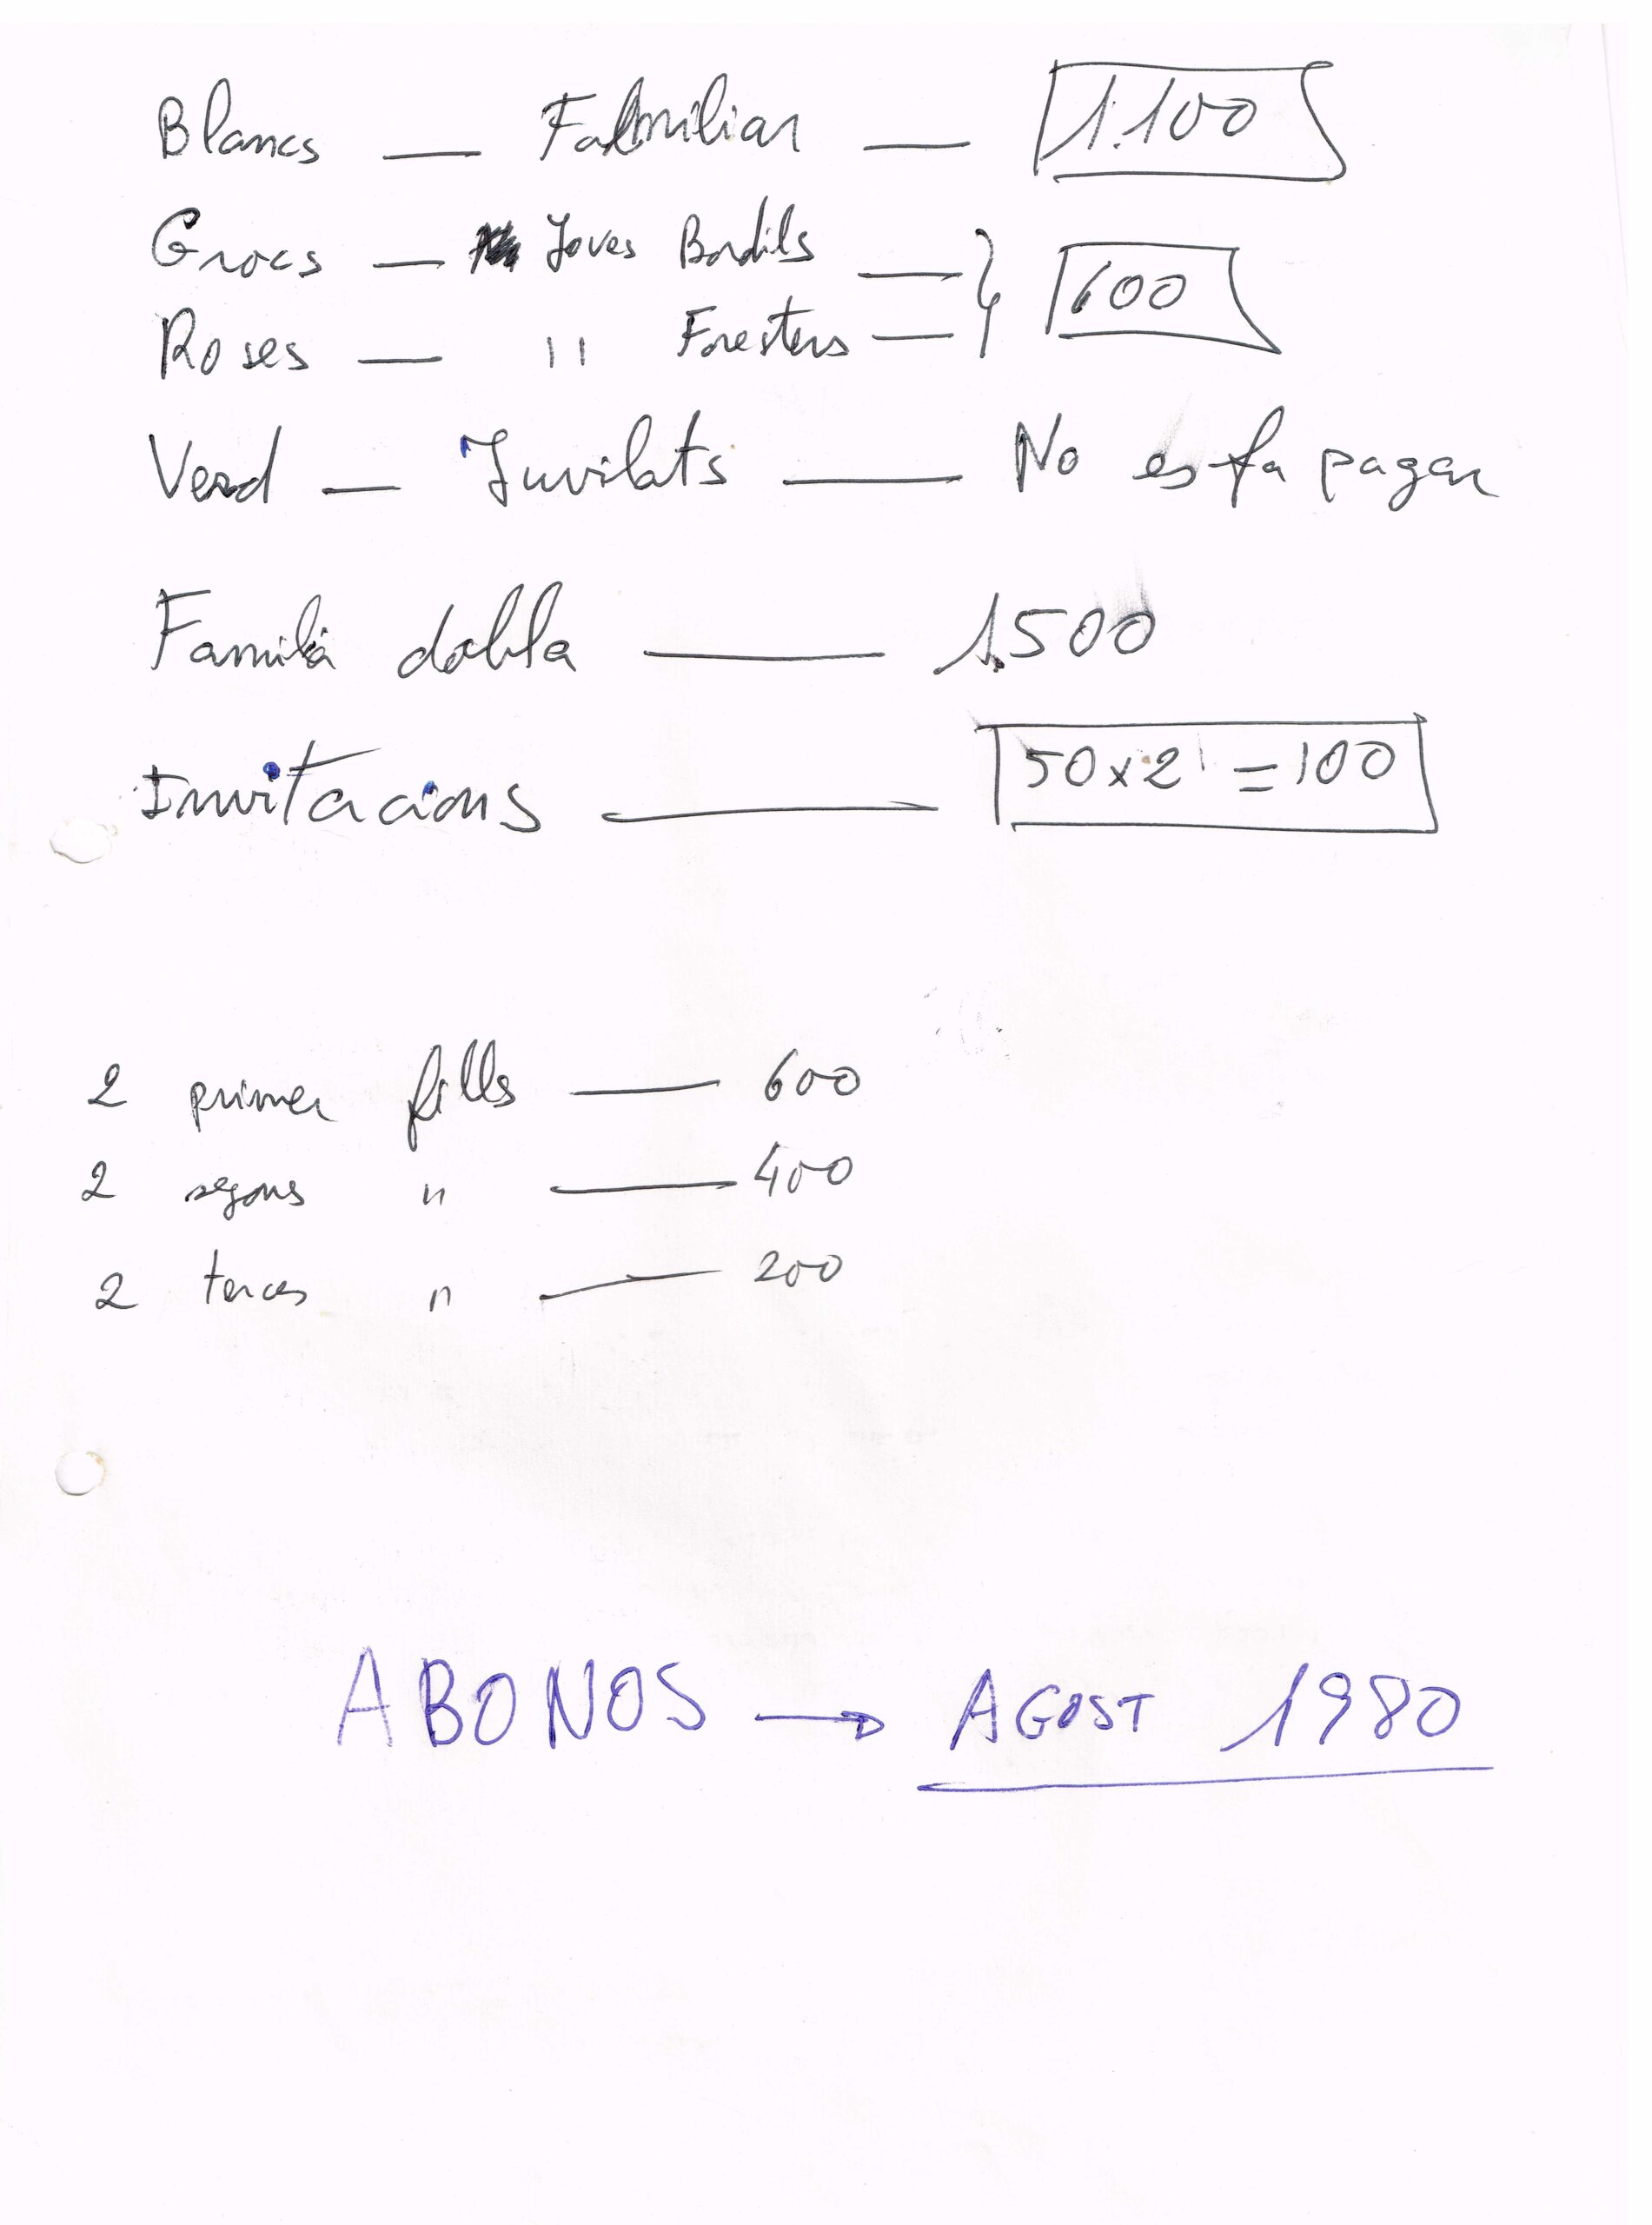 Blancs — Familiar — 1.100
Grocs — Joves Bordils — } 600
Roses — " Foresters —
Verd — Juvilats — No es fa pagar
Familia dobla — 1.500
Invitacions — 50 x 2 = 100
2 primer fills — 600
2 segons " — 400
2 terces " — 200
ABONOS → AGOST 1980